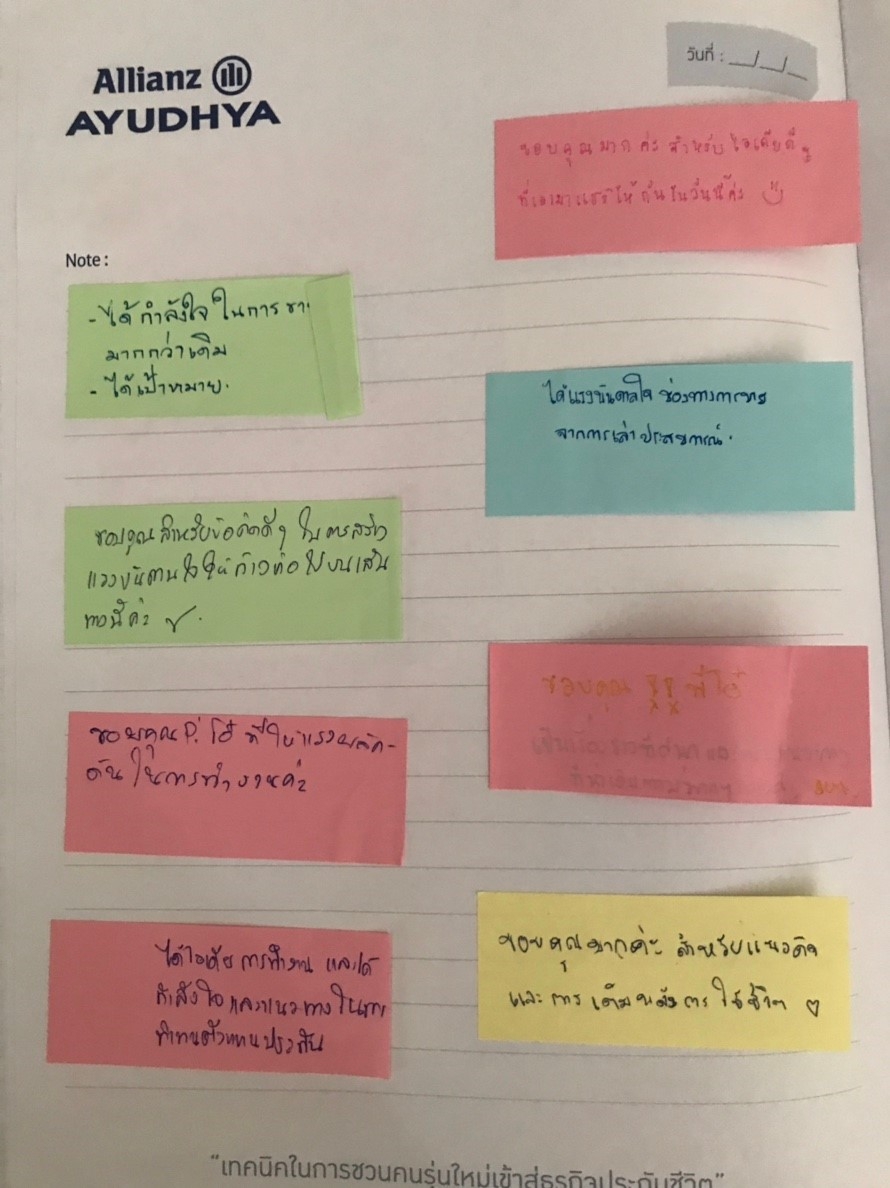 Allianz
AYUDHYA
วันที่ : __/__/__
ขอบคุณมากค่ะ สำหรับไอเดียดีๆ
ที่เอามาแชร์ให้กันในวันนี้ค่ะ
Note :
- ได้กำลังใจในการ
มากกว่าเดิม
- ได้เป้าหมาย.
ได้แรงบันดาลใจ ช่องทางการ
จากการเล่าประสบการณ์.
ขอบคุณสำหรับข้อคิดดีๆ ในการสร้าง
แรงบันดานใจให้ก้าวต่อไปบนเส้น
ทางนี้ค่ะ
ขอบคุณ
ขอบคุณP. โอ๋ ที่ให้แรงผลัก-
ดันในการทำงานค่ะ
ขอบคุณมากค่ะ สำหรับแนวคิด
และการเติมพลังการใช้ชีวิต
ได้ไอเดียการทำงาน และได้
กำลังใจและแนวทางใน
ตัวแทนประกัน
"เทคนิคในการชวนคนรุ่นใหม่เข้าสู่ธุรกิจประกันชีวิต"